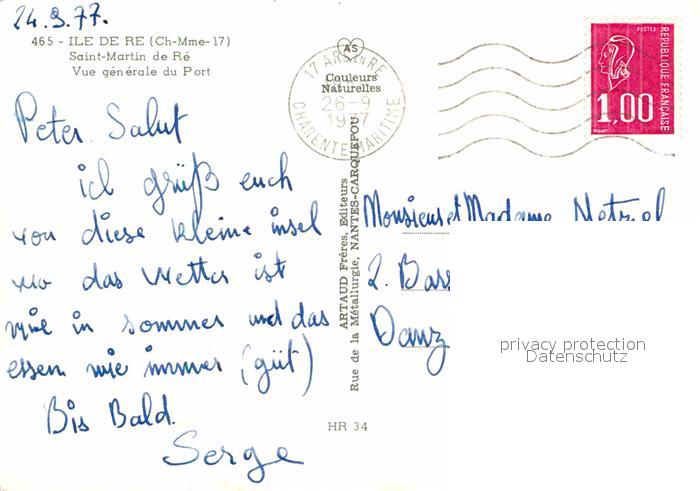 24.9.77.
465 - ILE DE RE (Ch-Mme-17)
Saint-Martin de Ré
Vue générale du Port
Peter. Salut
ich grüß euch
von diese kleine insel
wo das wetter ist
wie in sommer und das
essen wie immer (güt)
Bis Bald.
Serge
AS
Couleurs
Naturelles
17 ARS EN RE
26-9
1977
CHARENTE MARITIME
POSTES
REPUBLIQUE FRANÇAISE
1,00
BEQUET
ARTAUD Frères, Editeurs
Rue de la Métallurgie, NANTES-CARQUEFOU
Monsieur et Madame
2. Bass
Danz
privacy protection
Datenschutz
HR 34